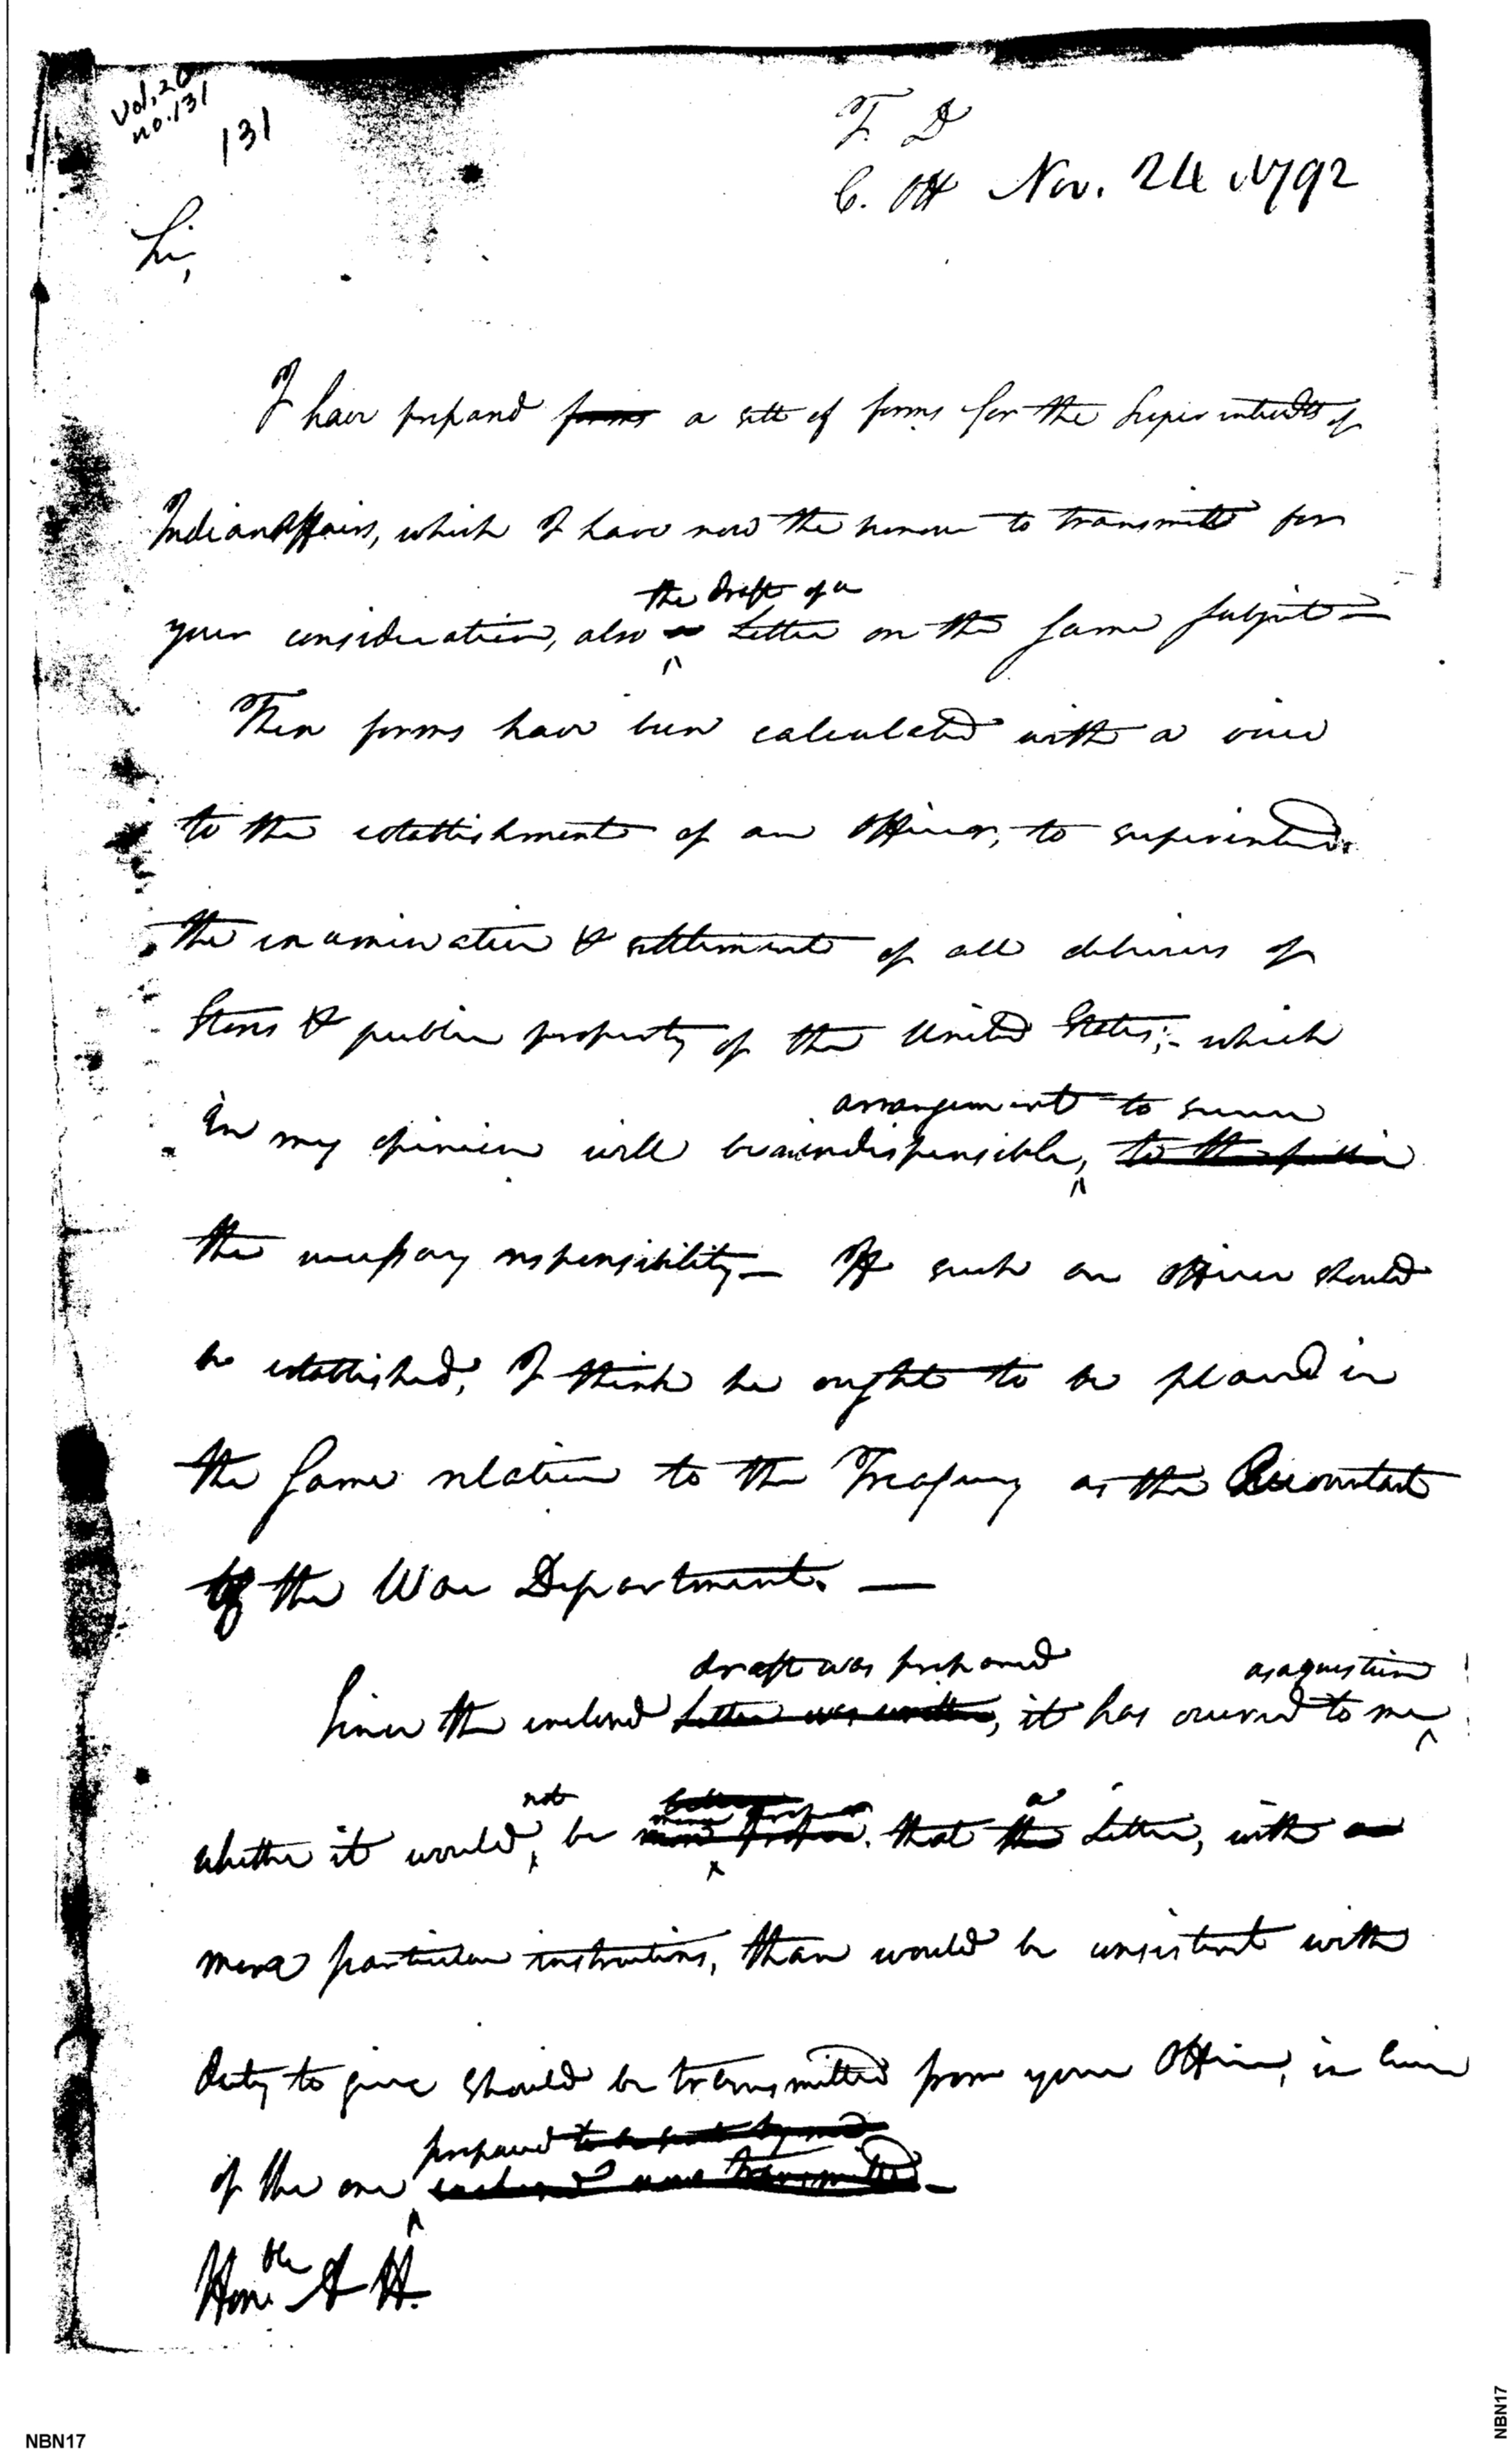 Vol. 20
no. 131
131
T. D
C. Off Nov. 24 1792
Sir,
I have prepared forms a sett of forms for the Superintendts of
Indian Affairs, which I have now the honour to transmitt for
the draft of a
your consideration, also a Letter on the same subject—
These forms have been calculated with a view
to the establishment of an Officer, to superintend
the examination & settlement of all deliveries of
Stores & public property of the United States;- which
arrangement to secure
in my opinion will be an indispensible, to the public
the necessary responsibility— If such an Officer should
be established, I think he ought to be placed in
the same relation to the Treasury as the Accountant
of the War Department. —
draft was prepared as a question
Since the enclosed Letter was written, it has occurred to me
not better more proper a
whether it would be more proper that the Letter, with a
more particular instructions, than would be consistent with
duty to give should be transmitted from your Office, in lieu
prepared to be sent by me
of the one enclosed now transmitted—
Honble A H.
NBN17
NBN17